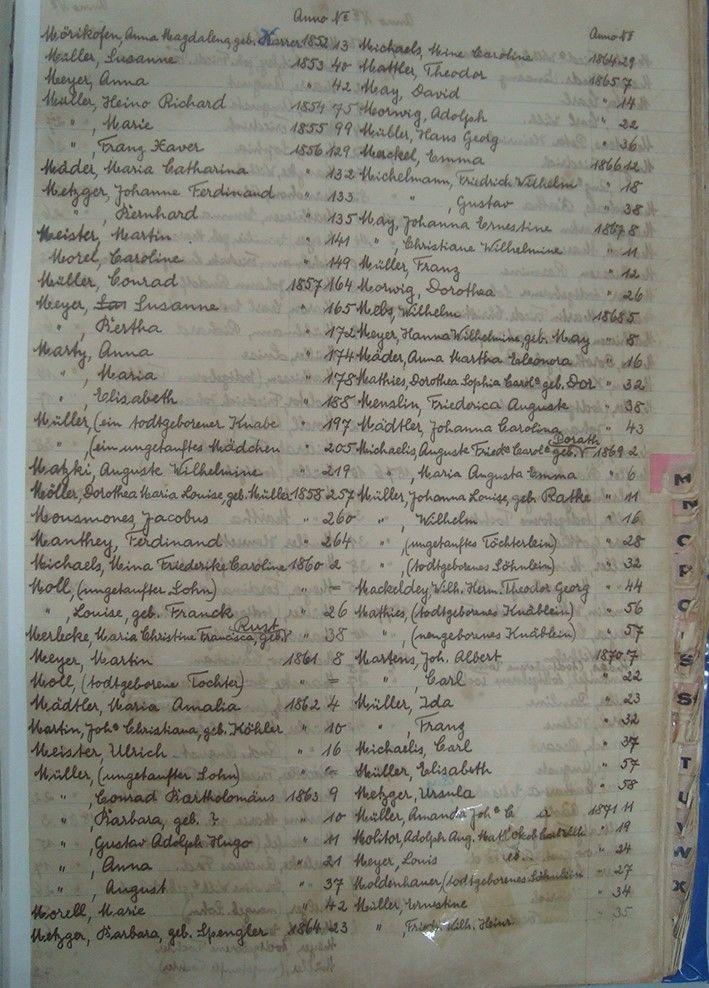 Anno No
Mörikofen, Anna Magdalena, geb. Karrer 1852 13
Müller, Susanne 1853 40
Meyer, Anna " 42
Müller, Heino Richard 1854 75
" , Marie 1855 99
" , Franz Xaver 1856 129
Mäder, Maria Catharina " 132
Metzger, Johanne Ferdinand " 133
" , Bernhard " 135
Meister, Martin " 141
Morel, Caroline " 149
Müller, Conrad 1857 164
Meyer, Susanne " 165
" , Bertha " 172
Marty, Anna " 174
" , Maria " 178
" , Elisabeth " 188
Müller, (ein todtgeborener Knabe " 197
" , (ein ungetauftes Mädchen " 205
Matzki, Auguste Wilhelmine " 219
Möller, Dorothea Maria Louise, geb. Müller 1858 257
Mousmones, Jacobus " 260
Manthey, Ferdinand " 264
Michaels, Mina Friederike Caroline 1860 2
Moll, (ungetaufter Sohn) " =
" , Louise, geb. Franck " 26
Merlecke, Maria Christine Francisca, geb. Rust " 38
Meyer, Martin 1861 8
Moll, (todtgeborene Tochter) " =
Mädtler, Maria Amalia 1862 4
Martin, Johe Christiana, geb. Köhler " 10
Meister, Ulrich " 16
Müller, (ungetaufter Sohn) " =
" , Conrad Bartholomäus 1863 9
" , Barbara, geb. ? " 10
" , Gustav Adolph Hugo " 11
" , Anna " 21
" , August " 37
Morell, Marie " 42
Metzger, Barbara, geb. Spengler 1864 23
Anno No
Michaels, Mine Caroline 1864 29
Mattler, Theodor 1865 7
May, David " 14
Morwig, Adolph " 22
Müller, Hans Georg " 36
Merckel, Emma 1866 12
Michelmann, Friedrich Wilhelm " 18
" , Gustav " 38
May, Johanna Ernestine 1867 8
" , Christiane Wilhelmine " 11
Müller, Franz " 12
Morwig, Dorothea " 26
Wilhelm 1868 5
Meyer, Hanna Wilhelmine, geb. May " 8
Mäder, Anna Martha Eleonora " 16
Mathies, Dorothea Sophia Carole geb. Dor " 32
Menslin, Friederica Auguste " 38
Mädtler, Johanna Carolina " 43
Michaelis, Auguste Friedr Carole geb. Dorath 1869 2
" , Maria Augusta Emma " 6
Müller, Johanna Louise, geb. Rathe " 11
" , Wilhelm " 16
" , (ungetauftes Töchterlein) " 28
" , (todtgebornes Söhnlein) " 32
Mackeldey, Wilh. Herm. Theodor Georg " 44
Mathies, (todtgebornes Knäblein) " 56
" , (neugebornes Knäblein) " 57
Martens, Joh. Albert 1870 7
" , Carl " 22
Müller, Ida " 23
" , Franz " 32
Michaelis, Carl " 37
Müller, Elisabeth " 57
Metzger, Ursula " 58
Müller, Amanda Johe 1871 11
Molitor, Adolph Aug. " 19
Meyer, Louis " 24
Moldenhauer, (todtgeborenes Söhnlein " 27
Müller, Ernestine " 34
" , Friedr. Wilh. Heinr. " 35
M
N
O
P
S
S
T
U
V
W
X